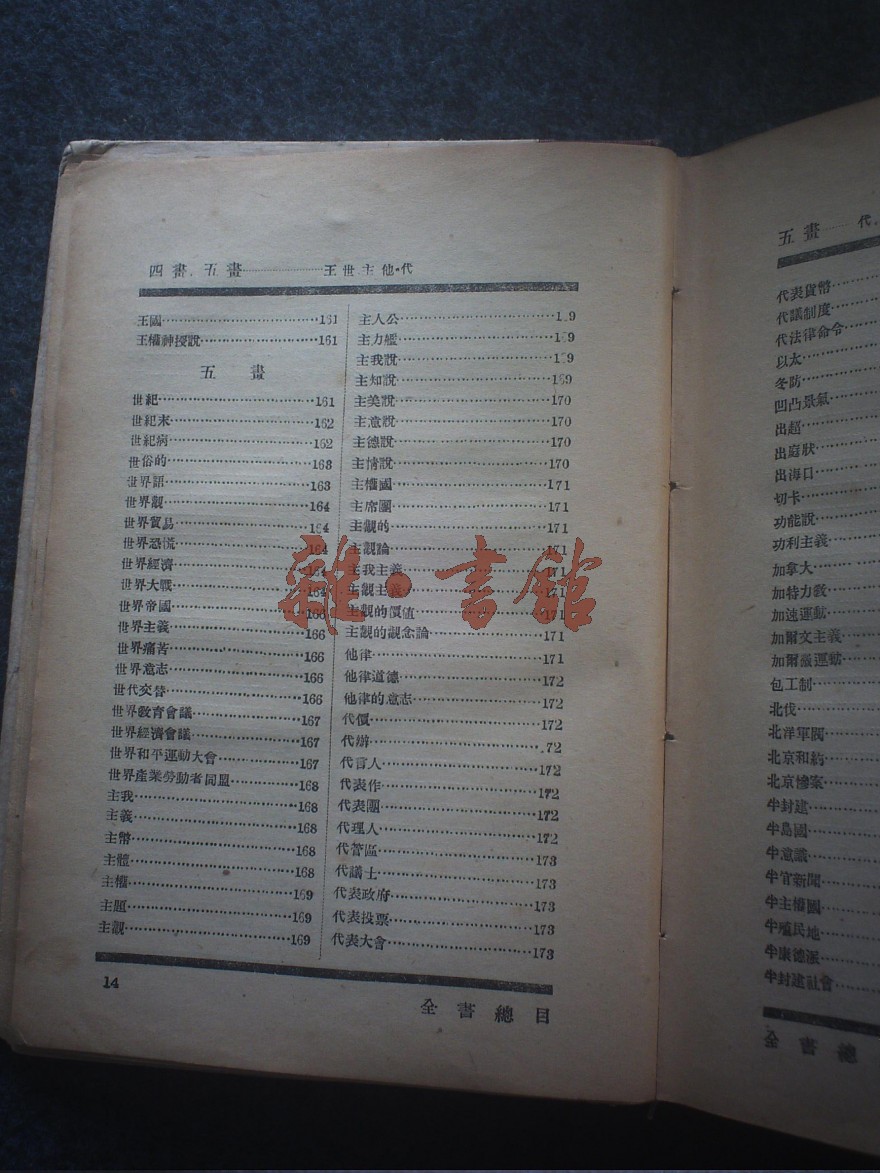 四畫.五畫⋯⋯⋯⋯王世主他·代
王國⋯⋯161
王權神授說⋯⋯161
五畫
世紀⋯⋯161
世紀末⋯⋯162
世紀病⋯⋯162
世俗的⋯⋯163
世界語⋯⋯163
世界觀⋯⋯164
世界貿易⋯⋯164
世界恐慌⋯⋯164
世界經濟⋯⋯164
世界大戰⋯⋯164
世界帝國⋯⋯166
世界主義⋯⋯166
世界痛苦⋯⋯166
世界意志⋯⋯166
世代交替⋯⋯166
世界教育會議⋯⋯167
世界經濟會議⋯⋯167
世界和平運動大會⋯⋯167
世界產業勞動者同盟⋯⋯168
主我⋯⋯168
主義⋯⋯168
主幣⋯⋯168
主體⋯⋯168
主權⋯⋯169
主題⋯⋯169
主觀⋯⋯169
主人公⋯⋯1 9
主力艦⋯⋯1 9
主我說⋯⋯1 9
主知說⋯⋯169
主美說⋯⋯170
主意說⋯⋯170
主德說⋯⋯170
主情說⋯⋯170
主權國⋯⋯171
主席團⋯⋯171
主觀的⋯⋯171
主觀論⋯⋯171
主我主義⋯⋯171
主觀主義⋯⋯171
主觀的價值⋯⋯171
主觀的觀念論⋯⋯171
他律⋯⋯171
他律道德⋯⋯172
他律的意志⋯⋯172
代價⋯⋯172
代辦⋯⋯72
代言人⋯⋯172
代表作⋯⋯172
代表團⋯⋯172
代理人⋯⋯172
代管區⋯⋯173
代議士⋯⋯173
代表政府⋯⋯173
代表投票⋯⋯173
代表大會⋯⋯173
14
全書總目
雜·書館
五畫⋯⋯代
代表貨幣⋯⋯
代議制度⋯⋯
代法律命令⋯⋯
以太⋯⋯
冬防⋯⋯
凹凸景氣⋯⋯
出超⋯⋯
出庭狀⋯⋯
出海口⋯⋯
切卡⋯⋯
功能說⋯⋯
功利主義⋯⋯
加拿大⋯⋯
加特力教⋯⋯
加速運動⋯⋯
加爾文主義⋯⋯
加爾嚴運動⋯⋯
包工制⋯⋯
北伐⋯⋯
北洋軍閥⋯⋯
北京和約⋯⋯
北京慘案⋯⋯
半封建⋯⋯
半島國⋯⋯
半意識⋯⋯
半官新聞⋯⋯
半主權國⋯⋯
半殖民地⋯⋯
半康德派⋯⋯
半封建社會⋯⋯
全書總